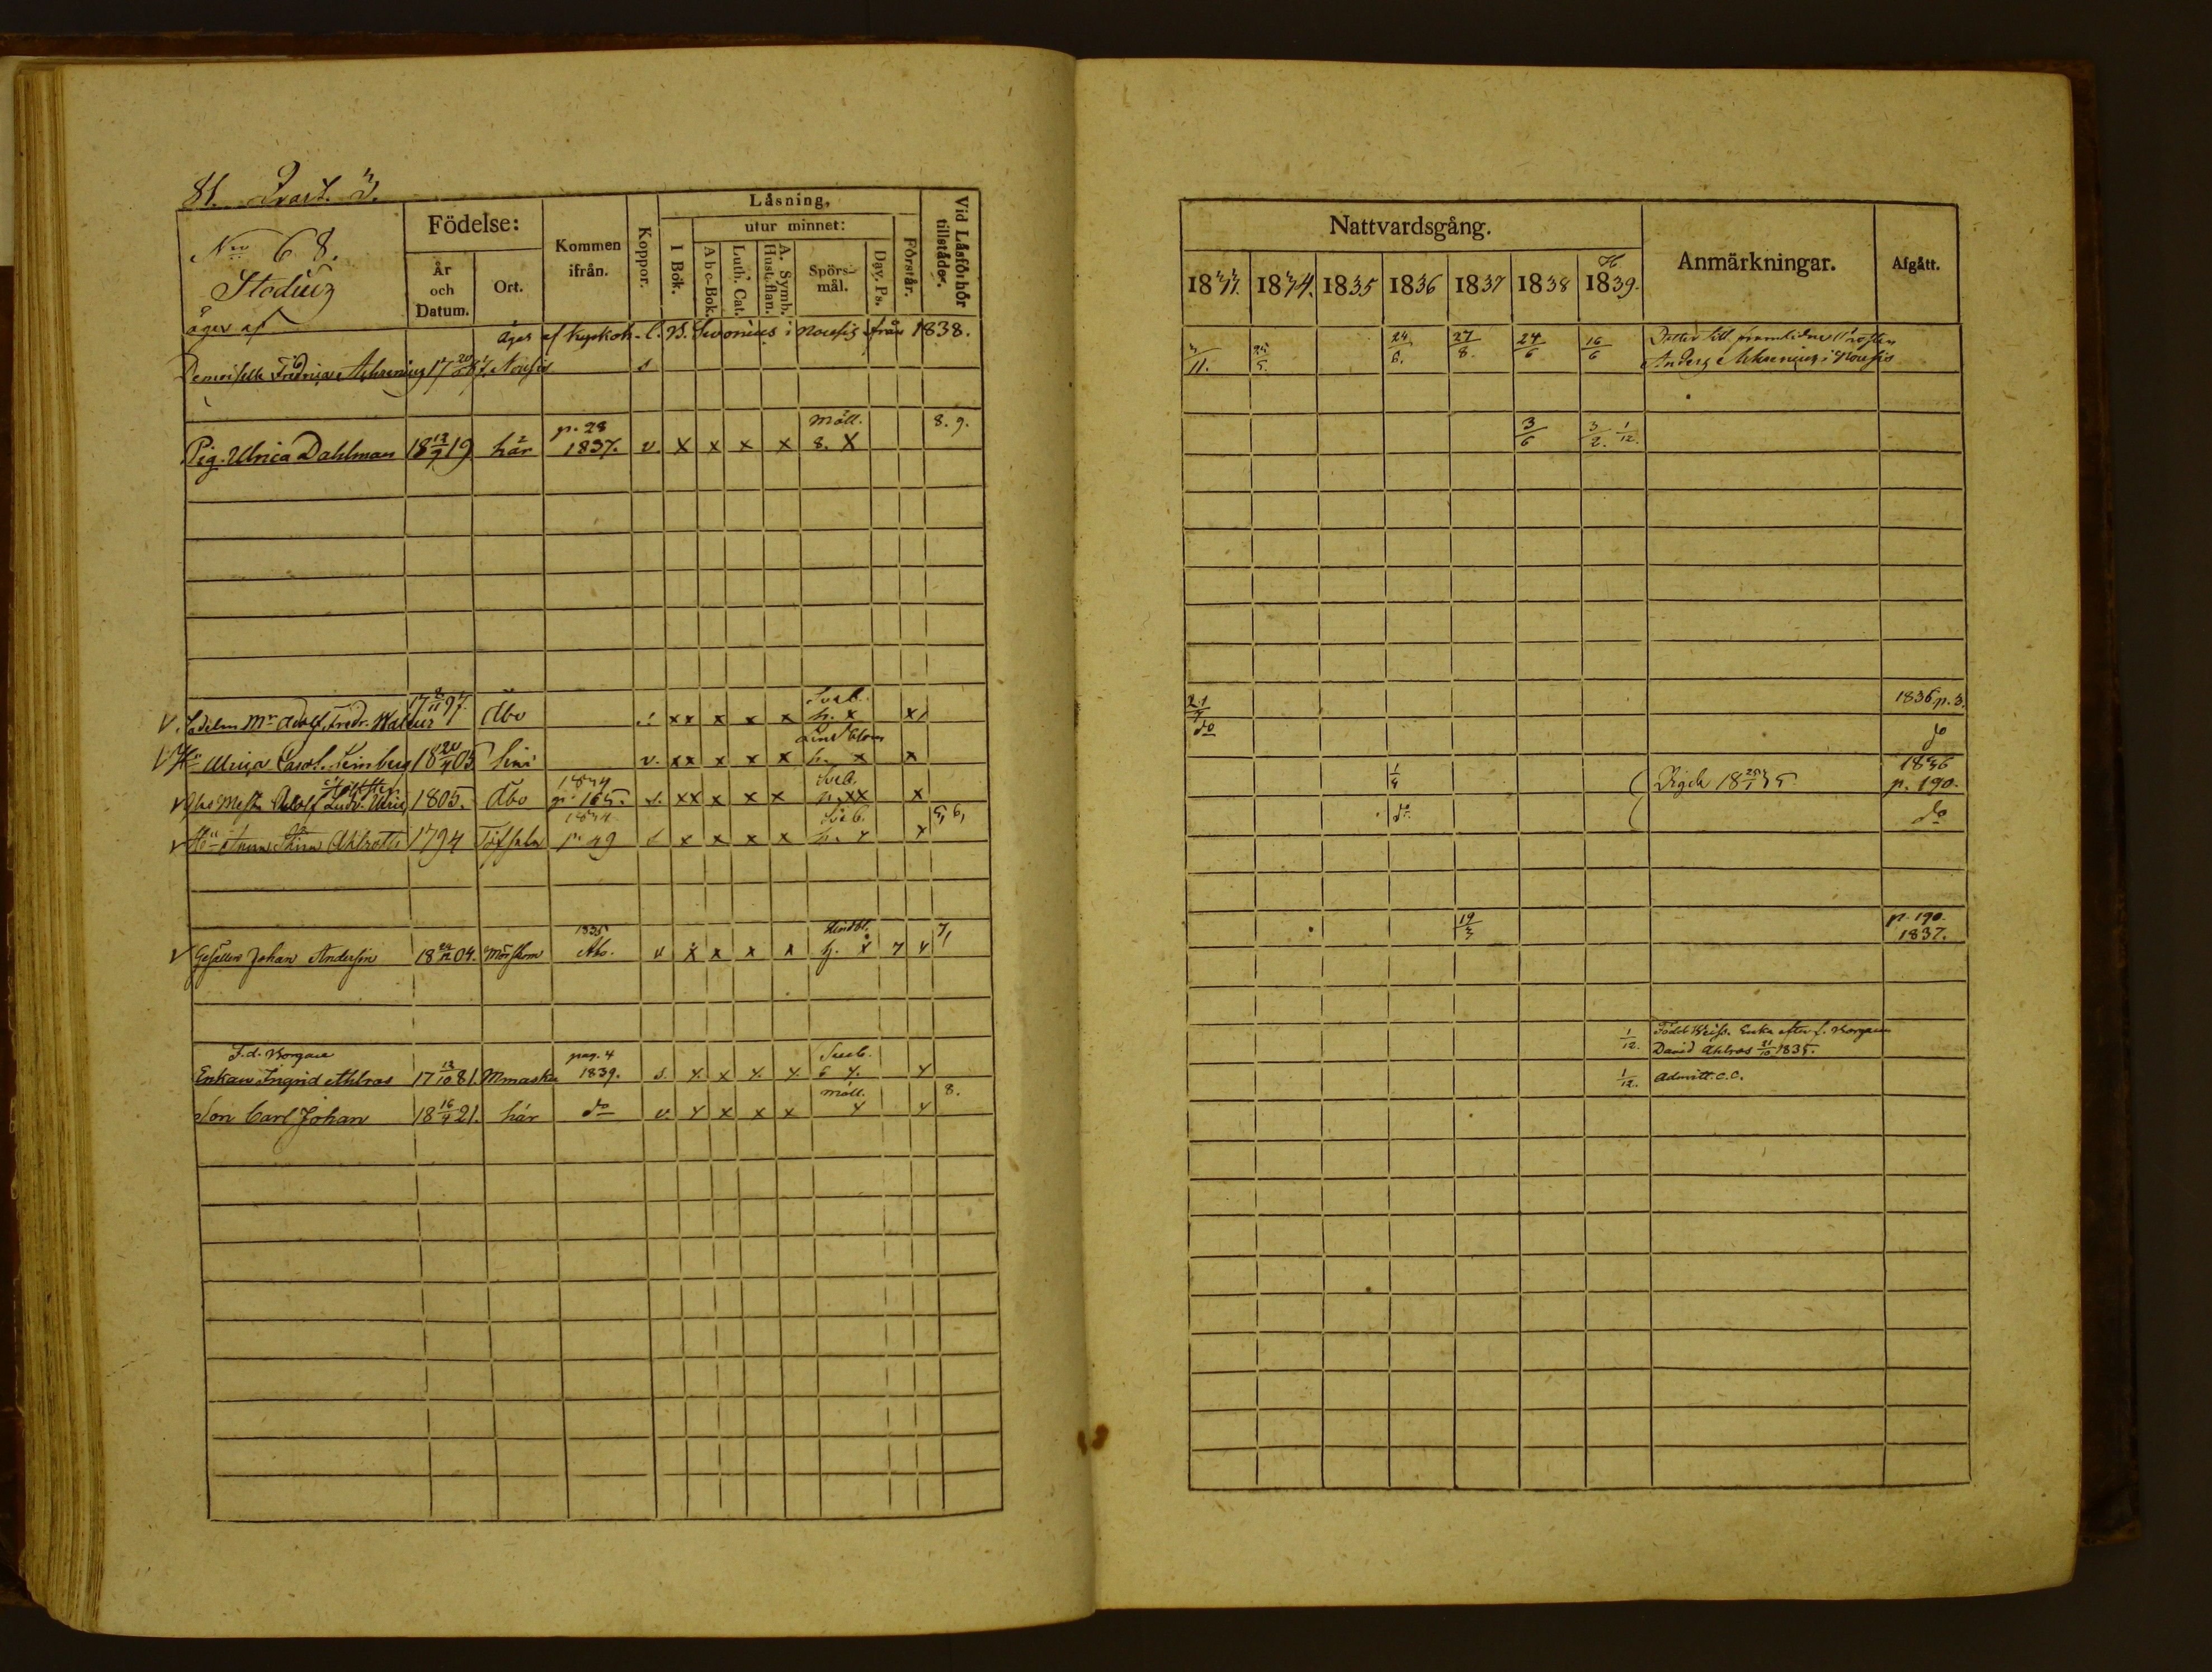 81. Qvart. 3.
No 68.
Stedius
äger af
Födelse:
År och Datum.
Ort.
Kommen ifrån.
Koppor.
Läsning,
I Bok.
utur minnet:
Abc-Bok.
Luth. Cat.
A. Symb. Hust. flan.
Spörs-mål.
Dav. Ps.
Förstår.
Vid Läsförhör tillstädes.
äges af Kyrkoh. C. B. i Nousis från 1838.
Demoiselle Fredrica Ahrenius 17 20/ 87. Nousis s
Pig. Ulrica Dahlman 18 12/7 19 här p. 28 1837. v x x x x Möll. 8. x 8. 9.
v. Mr Adolf Fredr. 17 /11 97. Åbo s. xx x x x Sveb. h. x x
v Hu Ulrica Carol. 18 20/ 05 v. xx x x x Lindblom h. x x
v Adolf Ludv. 1805. Åbo 1834 p. 165. s. xx x x x Sveb. h. xx x
v Hu Anna Ahlroth 1794 Töfsala 1834 p. 49 s x x x x Sveb. h. x x 5, 6,
v Gesällen Johan Anderson 18 22/12 04. 1835 Åbo. v x x x x Lindbl. h. x 7 x 7,
F.d. Borgare
Enkan Ingrid Ahlros 17 12/10 81. Mmasku pag. 4 1839. s. x x x x Sveb. 6 x. x
Son Carl Johan 18 16/9 21. här do v. x x x x Möll. x x 8.
Nattvardsgång.
1833. 1834. 1835 1836 1837 1838 1839.
Anmärkningar.
Afgått.
3/11. 25/5. 24/6. 27/8. 24/6 16/6 Dotter till framlidne Prosten
Anders Ahrenius i Nousis
3/6 3/2. 1/12.
21/ 1836 p. 3.
do do
1/4 Vigde 18 /1 35 1836 p. 190.
do do
19/3 p. 190. 1837.
1/12. Född Weiss. Enka efter f. Borgaren
David Ahlros 21/10 1835.
1/12. Admitt. C. C.